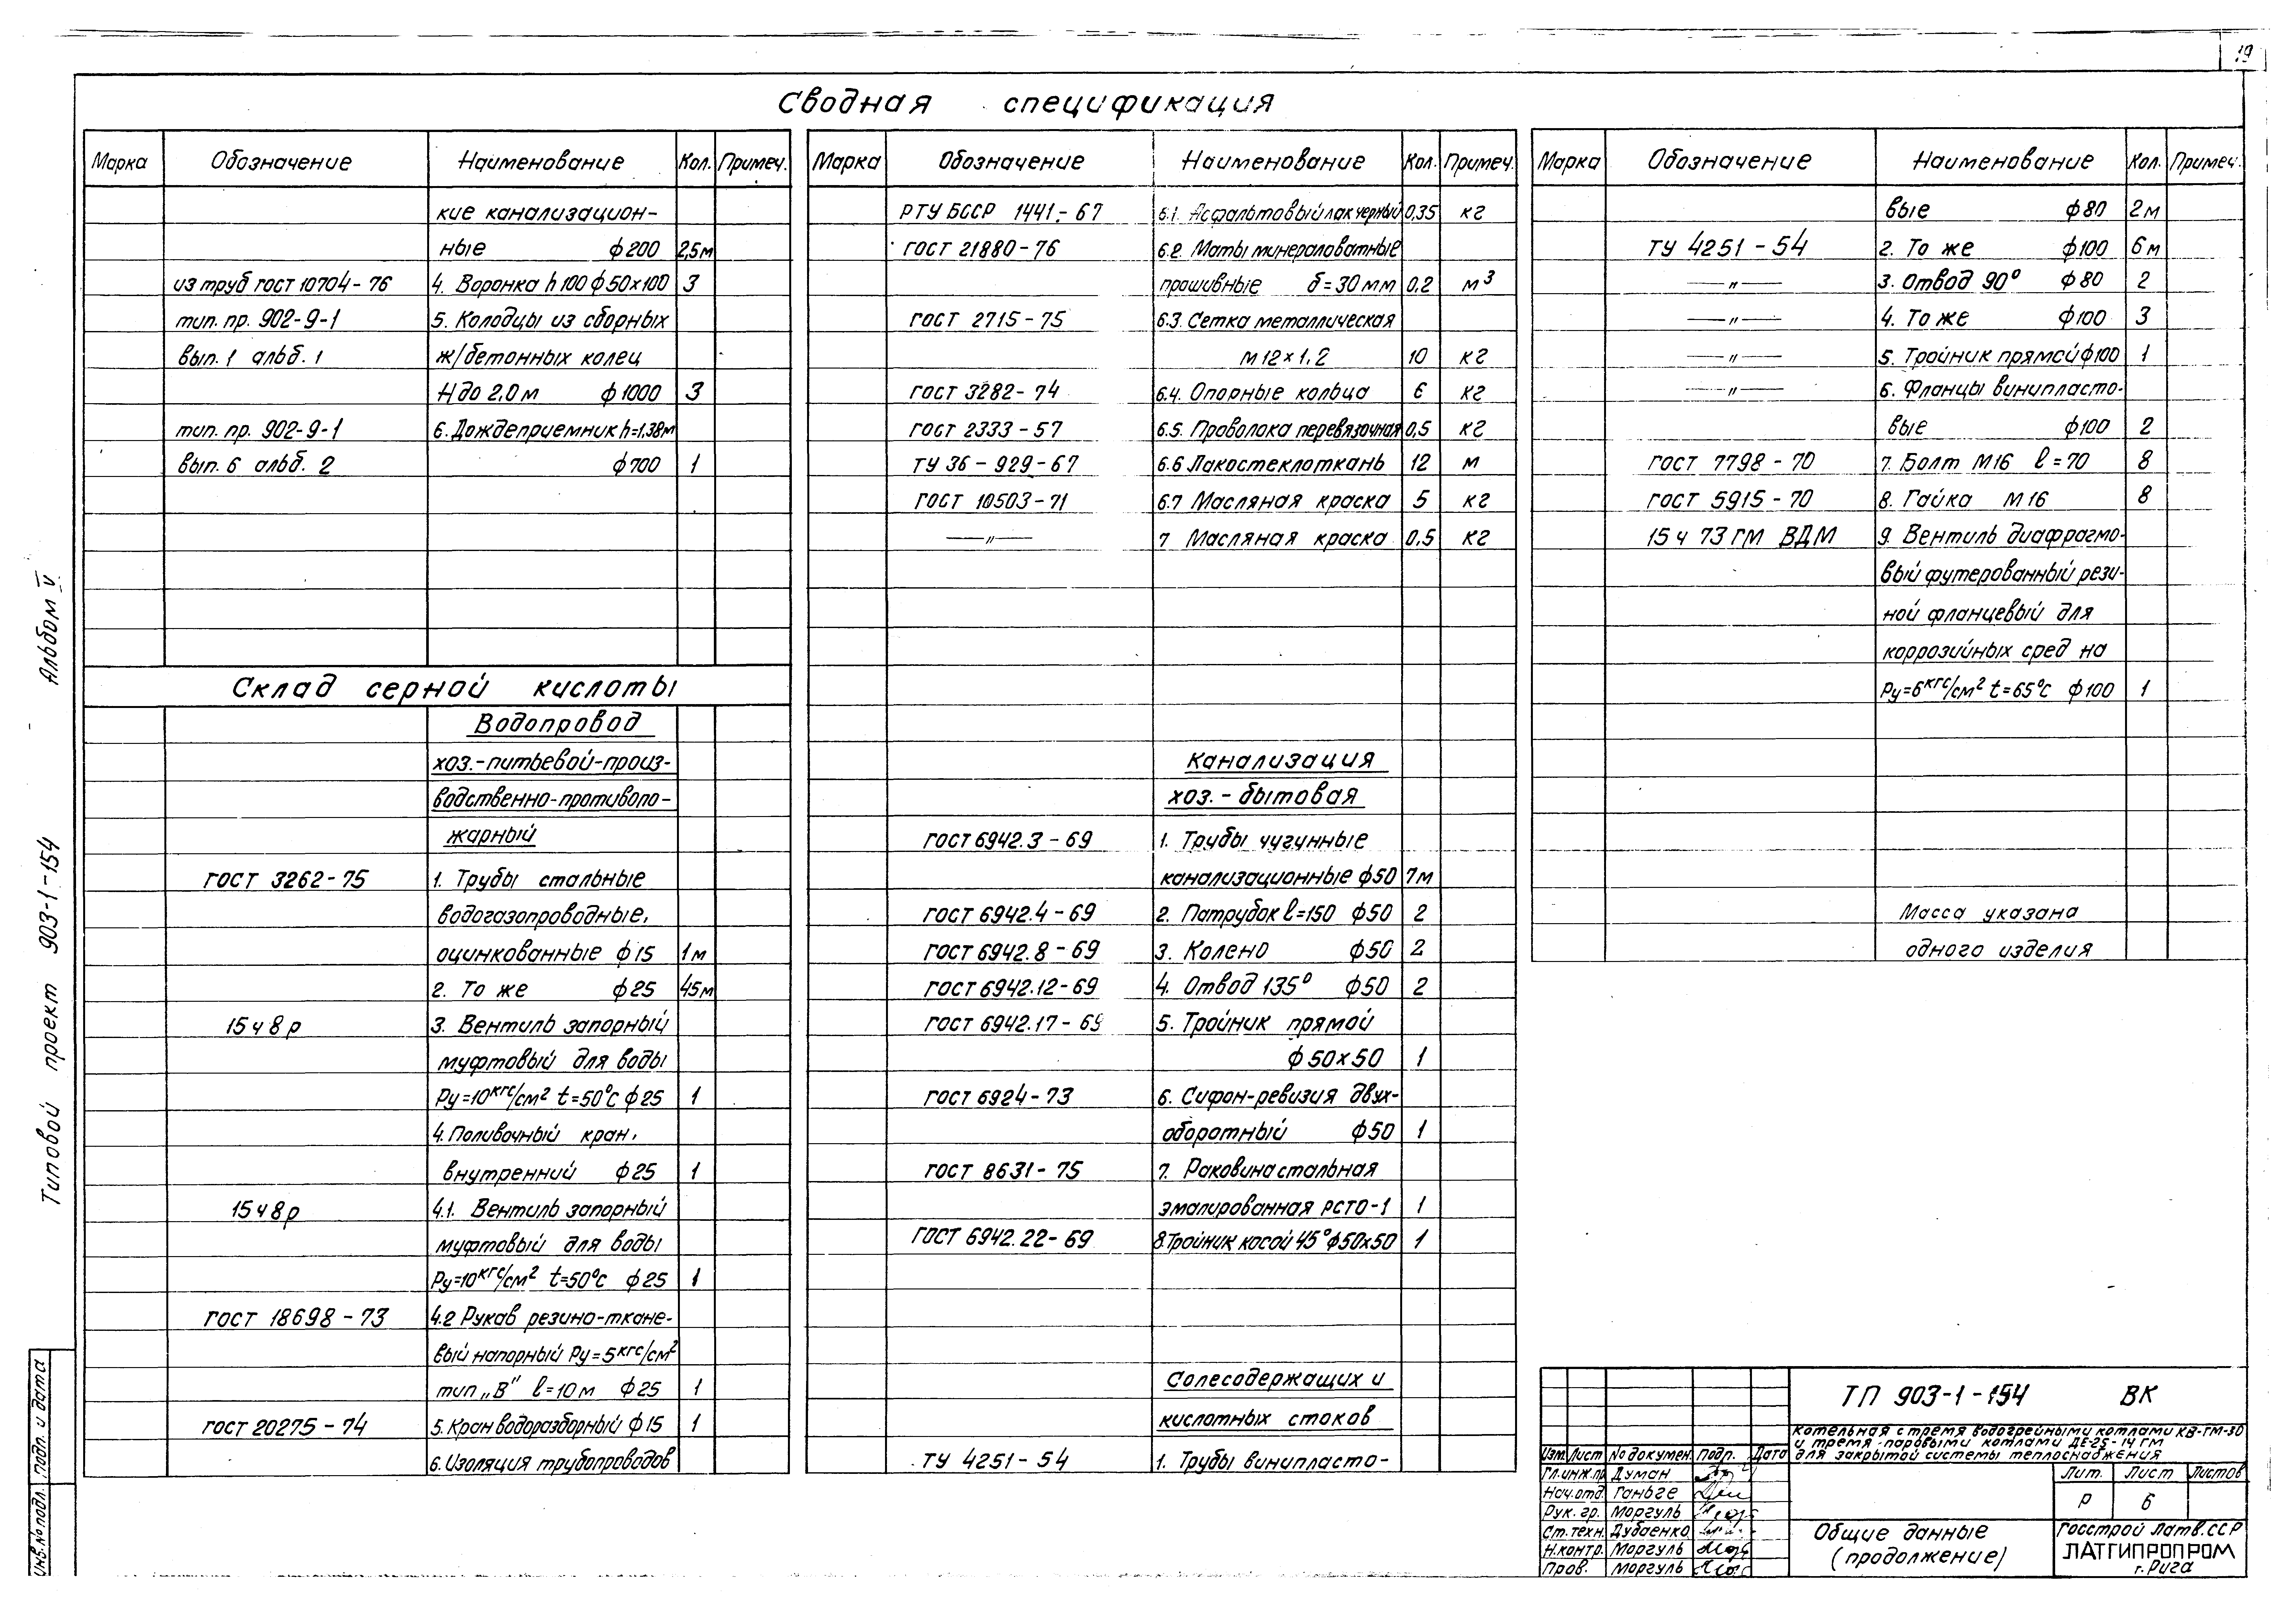 19
Сводная спецификация
Марка Обозначение Наименование Кол. Примеч.
кие канализацион-
ные ф200 2,5м
из труб ГОСТ 10704-76 4. Воронка h100 ф50х100 3
тип. пр. 902-9-1 5. Колодцы из сборных
вып. 1 альб. 1 ж/бетонных колец
Н до 2,0 м ф1000 3
тип. пр. 902-9-1 6. Дождеприемник h=1,38м
вып. 6 альб. 2 ф700 1
Склад серной кислоты
Водопровод
хоз.-питьевой-произ-
водственно-противопо-
жарный
ГОСТ 3262-75 1. Трубы стальные
водогазопроводные,
оцинкованные ф15 1м
2. То же ф25 45м
15ч8р 3. Вентиль запорный
муфтовый для воды
Ру=10кгс/см² t=50°С ф25 1
4. Поливочный кран,
внутренний ф25 1
15ч8р 4.1. Вентиль запорный
муфтовый для воды
Ру=10кгс/см² t=50°С ф25 1
ГОСТ 18698-73 4.2 Рукав резино-ткане-
вый напорный Ру=5кгс/см²
тип „В" ℓ=10м ф25 1
ГОСТ 20275-74 5. Кран водоразборный ф15 1
6. Изоляция трубопроводов
Марка Обозначение Наименование Кол. Примеч.
РТУ БССР 1441-67 6.1. Асфальтовый лак черный 0,35 кг
ГОСТ 21880-76 6.2. Маты минераловатные
прошивные δ=30мм 0,2 м³
ГОСТ 2715-75 6.3. Сетка металлическая
М12х1,2 10 кг
ГОСТ 3282-74 6.4. Опорные кольца 6 кг
ГОСТ 2333-57 6.5. Проволока перевязочная 0,5 кг
ТУ 36-929-67 6.6 Лакостеклоткань 12 м
ГОСТ 10503-71 6.7 Масляная краска 5 кг
—"— 7 Масляная краска 0,5 кг
Канализация
хоз.-бытовая
ГОСТ 6942.3-69 1. Трубы чугунные
канализационные ф50 7м
ГОСТ 6942.4-69 2. Патрубок ℓ=150 ф50 2
ГОСТ 6942.8-69 3. Колено ф50 2
ГОСТ 6942.12-69 4. Отвод 135° ф50 2
ГОСТ 6942.17-69 5. Тройник прямой
ф50х50 1
ГОСТ 6924-73 6. Сифон-ревизия двух-
оборотный ф50 1
ГОСТ 8631-75 7. Раковина стальная
эмалированная РСТО-1 1
ГОСТ 6942.22-69 8.Тройник косой 45° ф50х50 1
Солесодержащих и
кислотных стоков
ТУ 4251-54 1. Трубы винипласто-
Марка Обозначение Наименование Кол. Примеч.
вые ф80 2м
ТУ 4251-54 2. То же ф100 6м
—"— 3. Отвод 90° ф80 2
—"— 4. То же ф100 3
—"— 5. Тройник прямой ф100 1
—"— 6. Фланцы винипласто-
вые ф100 2
ГОСТ 7798-70 7. Болт М16 ℓ=70 8
ГОСТ 5915-70 8. Гайка М16 8
15ч 73 ГМ ВДМ 9. Вентиль диафрагмо-
вый футерованный рези-
ной фланцевый для
коррозийных сред на
Ру=6кгс/см² t=65°С ф100 1
Масса указана
одного изделия
Типовой проект 903-1-154 Альбом V
Инв.№ подл. Подп. и дата
ТП 903-1-154 ВК
Котельная с тремя водогрейными котлами КВ-ГМ-30
и тремя паровыми котлами ДЕ-25-14ГМ
для закрытой системы теплоснабжения
Изм. Лист № докумен. Подп. Дата
Гл.инж.пр Думан
Нач.отд. Ганьге
Рук. гр. Моргуль
Ст.техн. Дубаенко
Н.контр. Моргуль
Пров. Моргуль
Лит. Лист Листов
Р 6
Общие данные
(продолжение)
Госстрой Латв.ССР
ЛАТГИПРОПРОМ
г. Рига